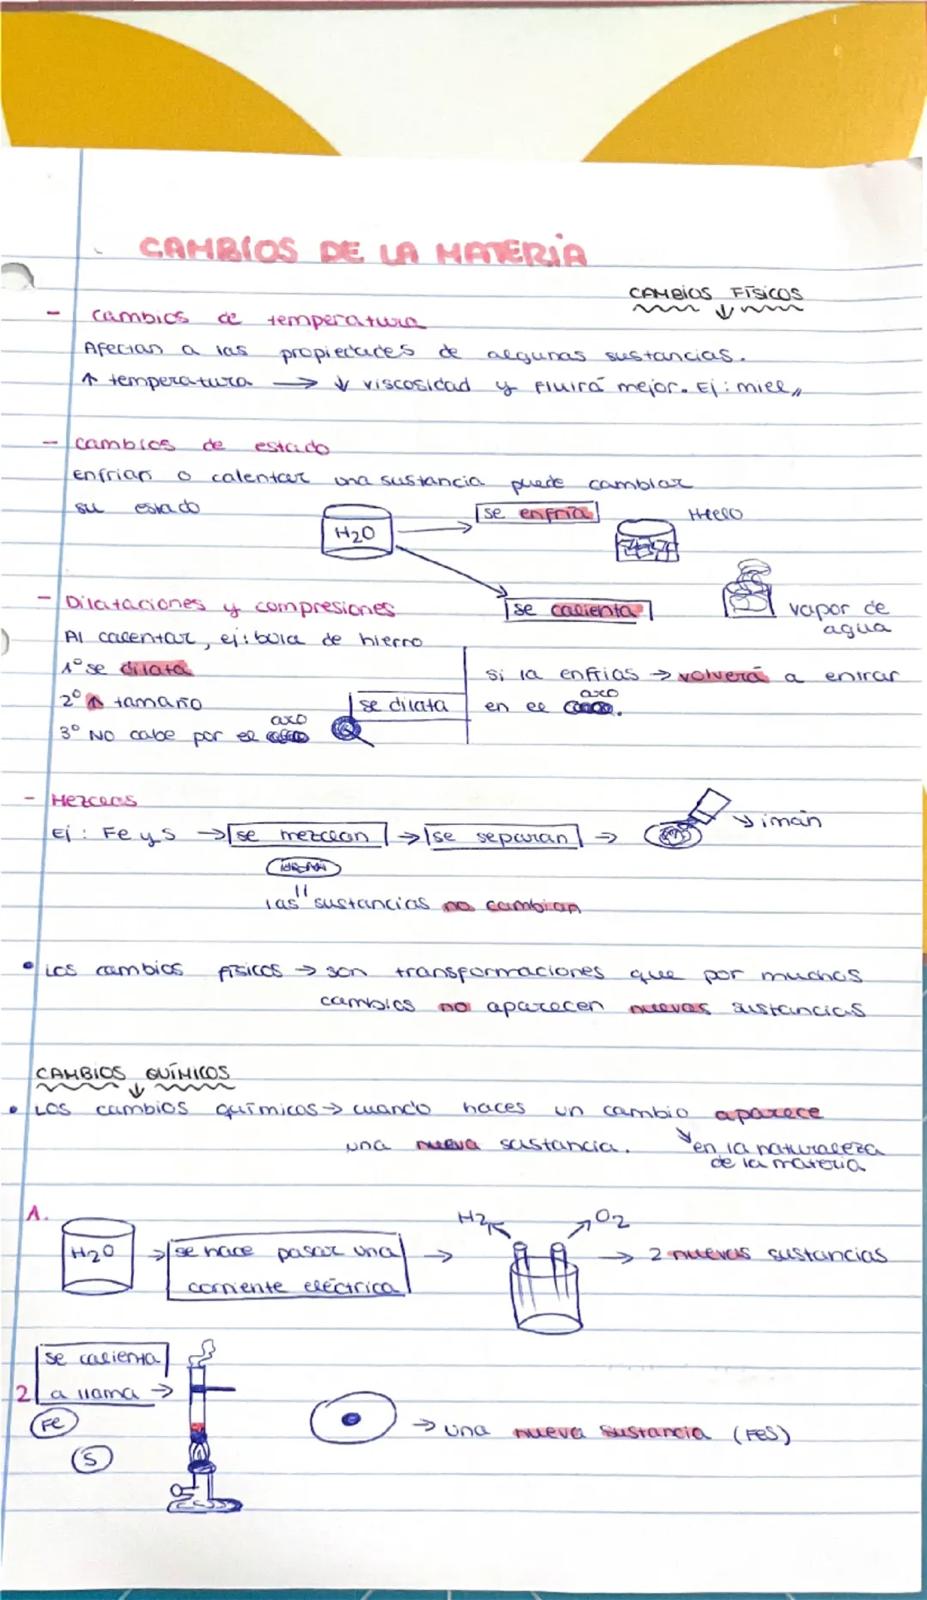 CAMBIOS DE LA MATERIA
CAMBIOS FÍSICOS
- cambios de temperatura
Afectan a las propiedades de algunas sustancias.
↑ temperatura → ↓ viscosidad y fluirá mejor. Ej: miel,,
- cambios de estado
enfriar o calentar una sustancia puede cambiar
su estado
H2O
se enfría
Hielo
se calienta
vapor de
agua
- Dilataciones y compresiones
Al calentar, ej: bola de hierro
1º se dilata
2º ↑ tamaño
3º NO cabe por el aro
se dilata
si la enfrias → volverá a entrar
en el aro.
- Mezclas
Ej: Fe y S → se mezclan → se separan →
imán
las sustancias no cambian
• Los cambios físicos → son transformaciones que por muchos
cambios no aparecen nuevas sustancias
CAMBIOS QUÍMICOS
• Los cambios químicos → cuando haces un cambio aparece
una nueva sustancia.
en la naturaleza
de la materia
1.
H2O → se hace pasar una
corriente eléctrica →
H2
O2
→ 2 nuevas sustancias
2
se calienta
a llama →
Fe
S
→ una nueva sustancia (FeS)